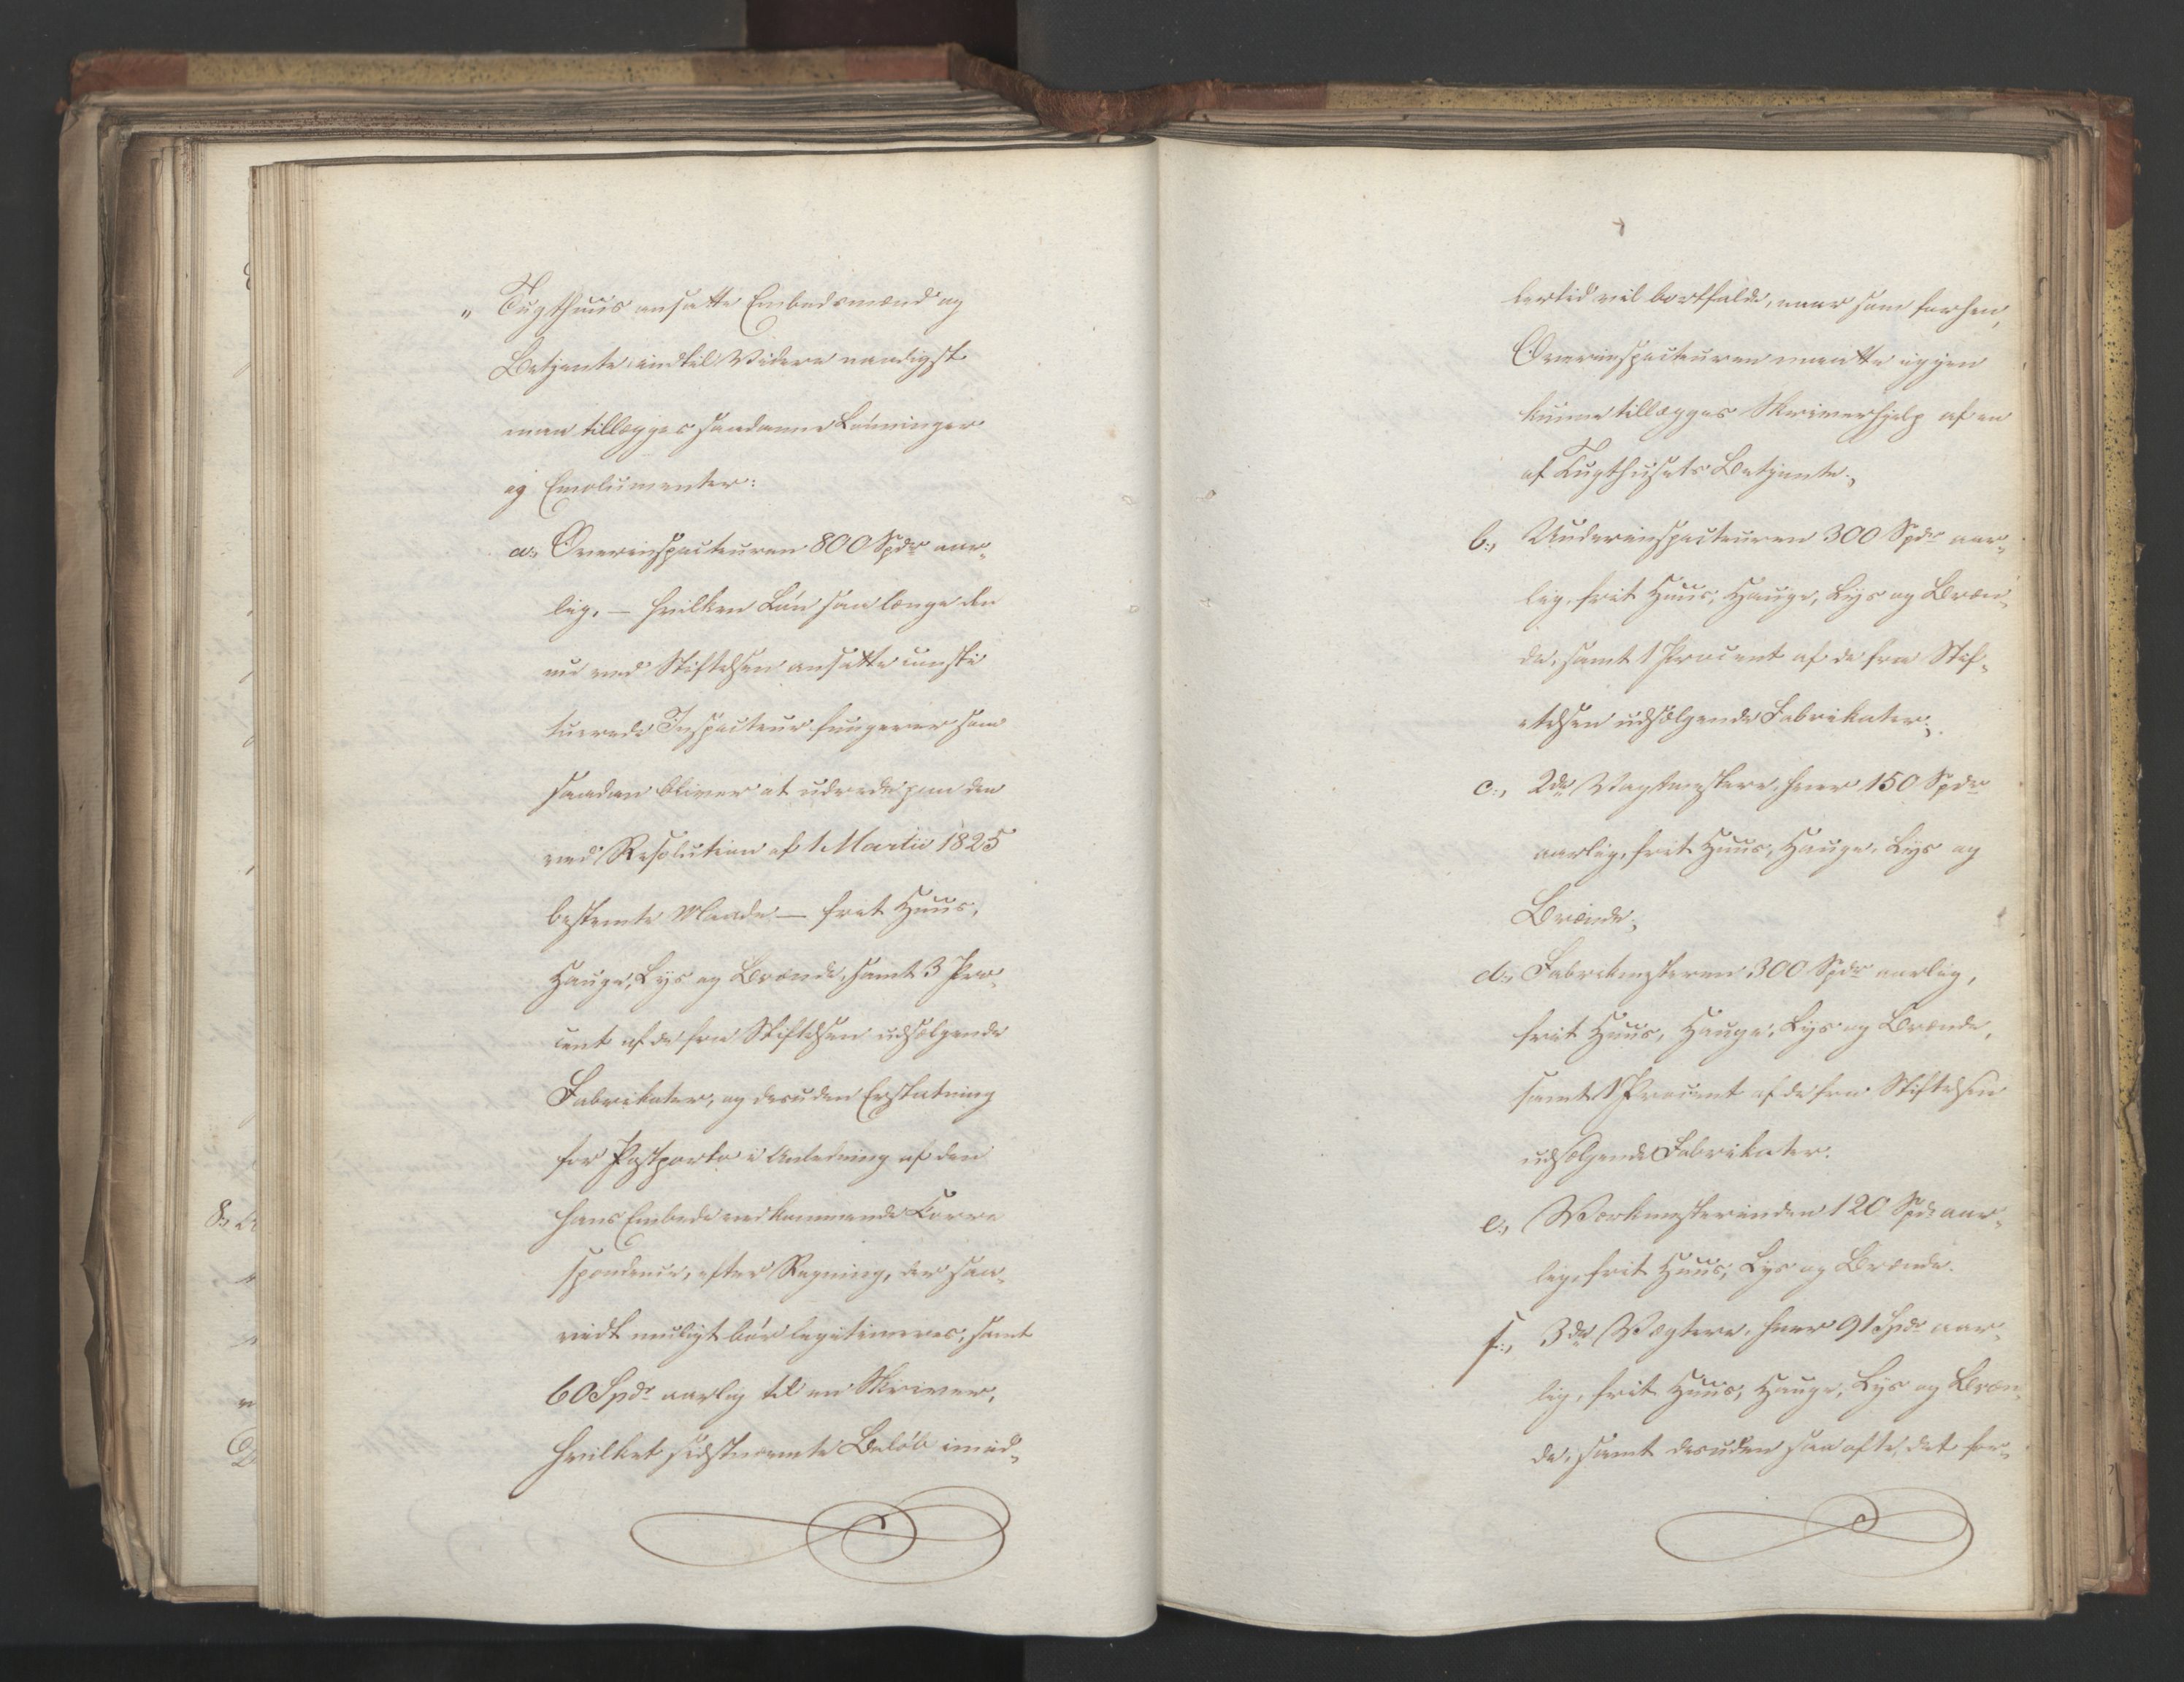 " Tugthuus ansatte Embedsmænd og
Betjente indtil Videre naadigst
maa tillægges saadanne Lønninger
og Emolumenter:
a., Overinspecteuren 800 Spdr aar„
lig, — hvilken Løn saalænge den
nu ved Stiftelsen ansatte consti
tuerede Inspecteur fungerer som
saadan bliver at udrede paa den
ved Resolution af 1 Martii 1825
bestemte Maade — frit Huus,
Hauge, Lys og Brænde, samt 3 Pro„
cent af de fra Stiftelsen udsælgende
Fabrikater, og desuden Erstatning
for Postporto i Anledning af den
hans Embede vedkommende Corre
spondence, efter Regning, der saa„
vidt muligt bør legitimeres, samt
60 Spdr aarlig til en Skriver,
hvilket sidstnævnte Beløb imid„
lertid vil bortfalde, naar som forhen,
Overinspecteuren maatte igjen
kunne tillægges Skriverhjelp af en
af Tugthusets Betjente.,
b., Underinspecteuren 300 Spdr aar„
lig, frit Huus, Hauge, Lys og Bræn„
de, samt 1 Procent af de fra Stif„
telsen udsælgende Fabrikater.,
c., 2de Vagtmestere, hver 150 Spdr
aarlig, frit Huus, Hauge, Lys og
Brænde.,
d., Fabrikmesteren 300 Spdr aarlig,
frit Huus, Hauge, Lys og Brænde,
samt 1 Procent af de fra Stiftelsen
udsælgende Fabrikater.
e., Værkmesterinden 120 Spdr aar„
lig, frit Huus, Lys og Brænde.
f., 3de Vægtere, hver 91 Spdr aar„
lig, frit Huus, Hauge, Lys og Bræn„
de, samt desuden saa ofte det for„